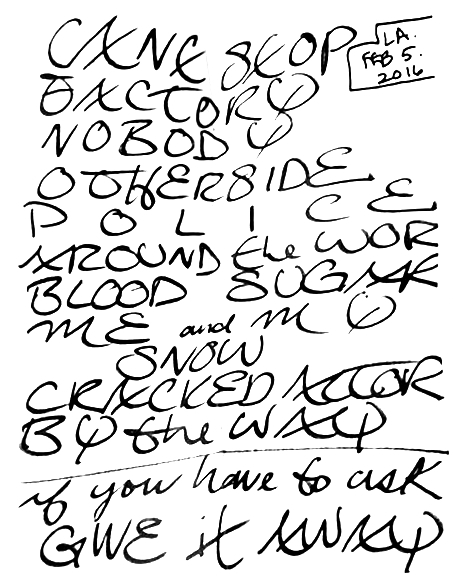 CANT STOP
LA.
FEB 5.
2016
FACTORY
NOBODY
OthERSIDE
POLICE
AROUND the WOR
BLOOD SUGAR
ME and MY
SNOW
CRACKED ACTOR
BY the WAY
if you have to ask
GIVE it AWAY